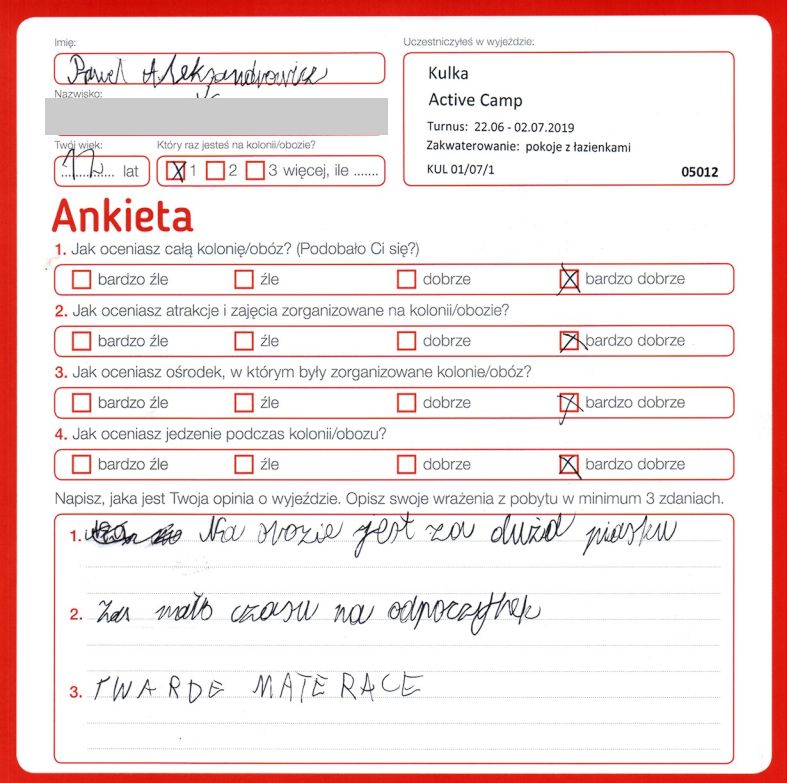 Imię:
Paweł Aleksandrowicz
Nazwisko:
Twój wiek:
12 lat
Który raz jesteś na kolonii/obozie?
1 2 3 więcej, ile .......
Uczestniczyłeś w wyjeździe:
Kulka
Active Camp
Turnus: 22.06 - 02.07.2019
Zakwaterowanie: pokoje z łazienkami
KUL 01/07/1 05012
Ankieta
1. Jak oceniasz całą kolonię/obóz? (Podobało Ci się?)
bardzo źle źle dobrze bardzo dobrze
2. Jak oceniasz atrakcje i zajęcia zorganizowane na kolonii/obozie?
bardzo źle źle dobrze bardzo dobrze
3. Jak oceniasz ośrodek, w którym były zorganizowane kolonie/obóz?
bardzo źle źle dobrze bardzo dobrze
4. Jak oceniasz jedzenie podczas kolonii/obozu?
bardzo źle źle dobrze bardzo dobrze
Napisz, jaka jest Twoja opinia o wyjeździe. Opisz swoje wrażenia z pobytu w minimum 3 zdaniach.
1. Na obozie jest za dużo piasku
2. Za mało czasu na odpoczynek
3. TWARDE MATERACE